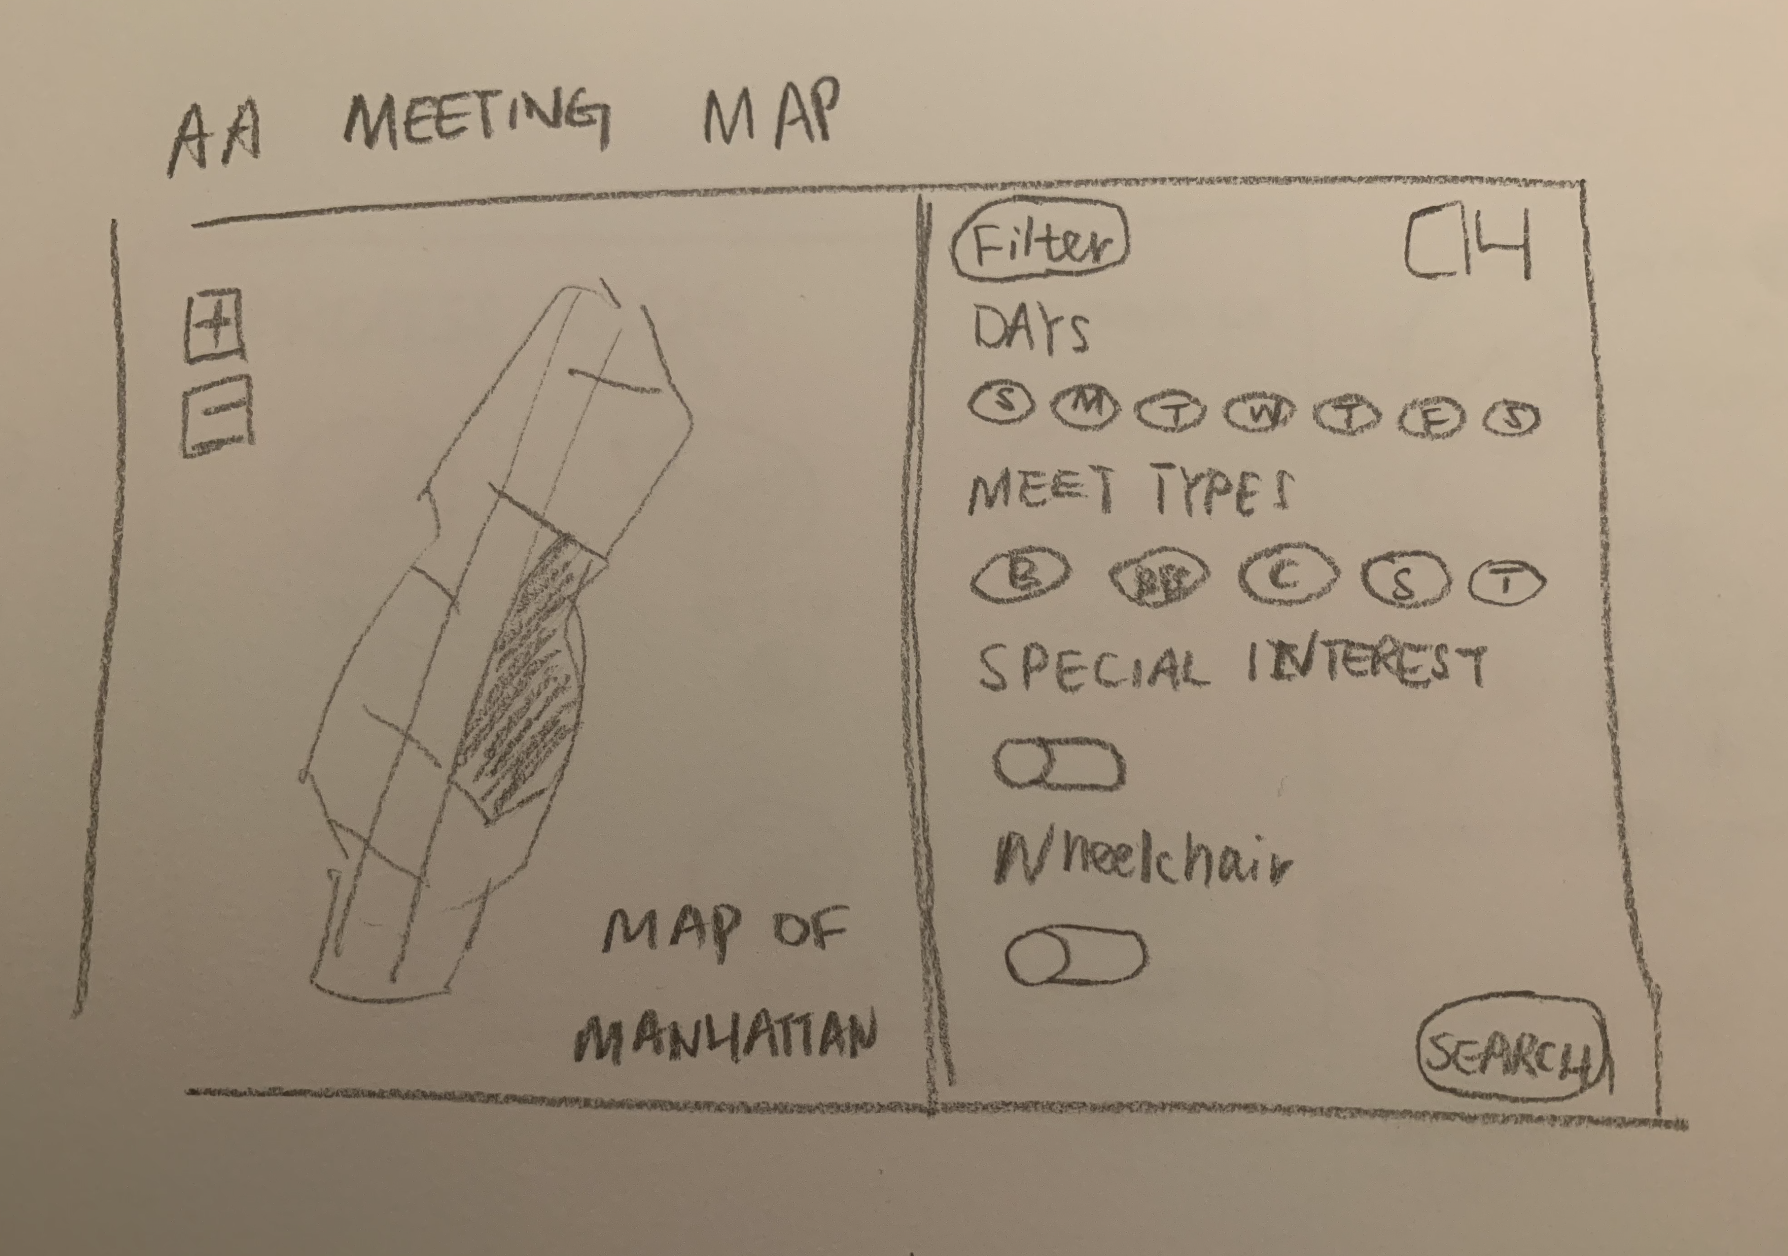 AA MEETING MAP
+
-
MAP OF
MANHATTAN
Filter
DAYS
S M T W T F S
MEET TYPES
B BB C S T
SPECIAL INTEREST
Wheelchair
SEARCH